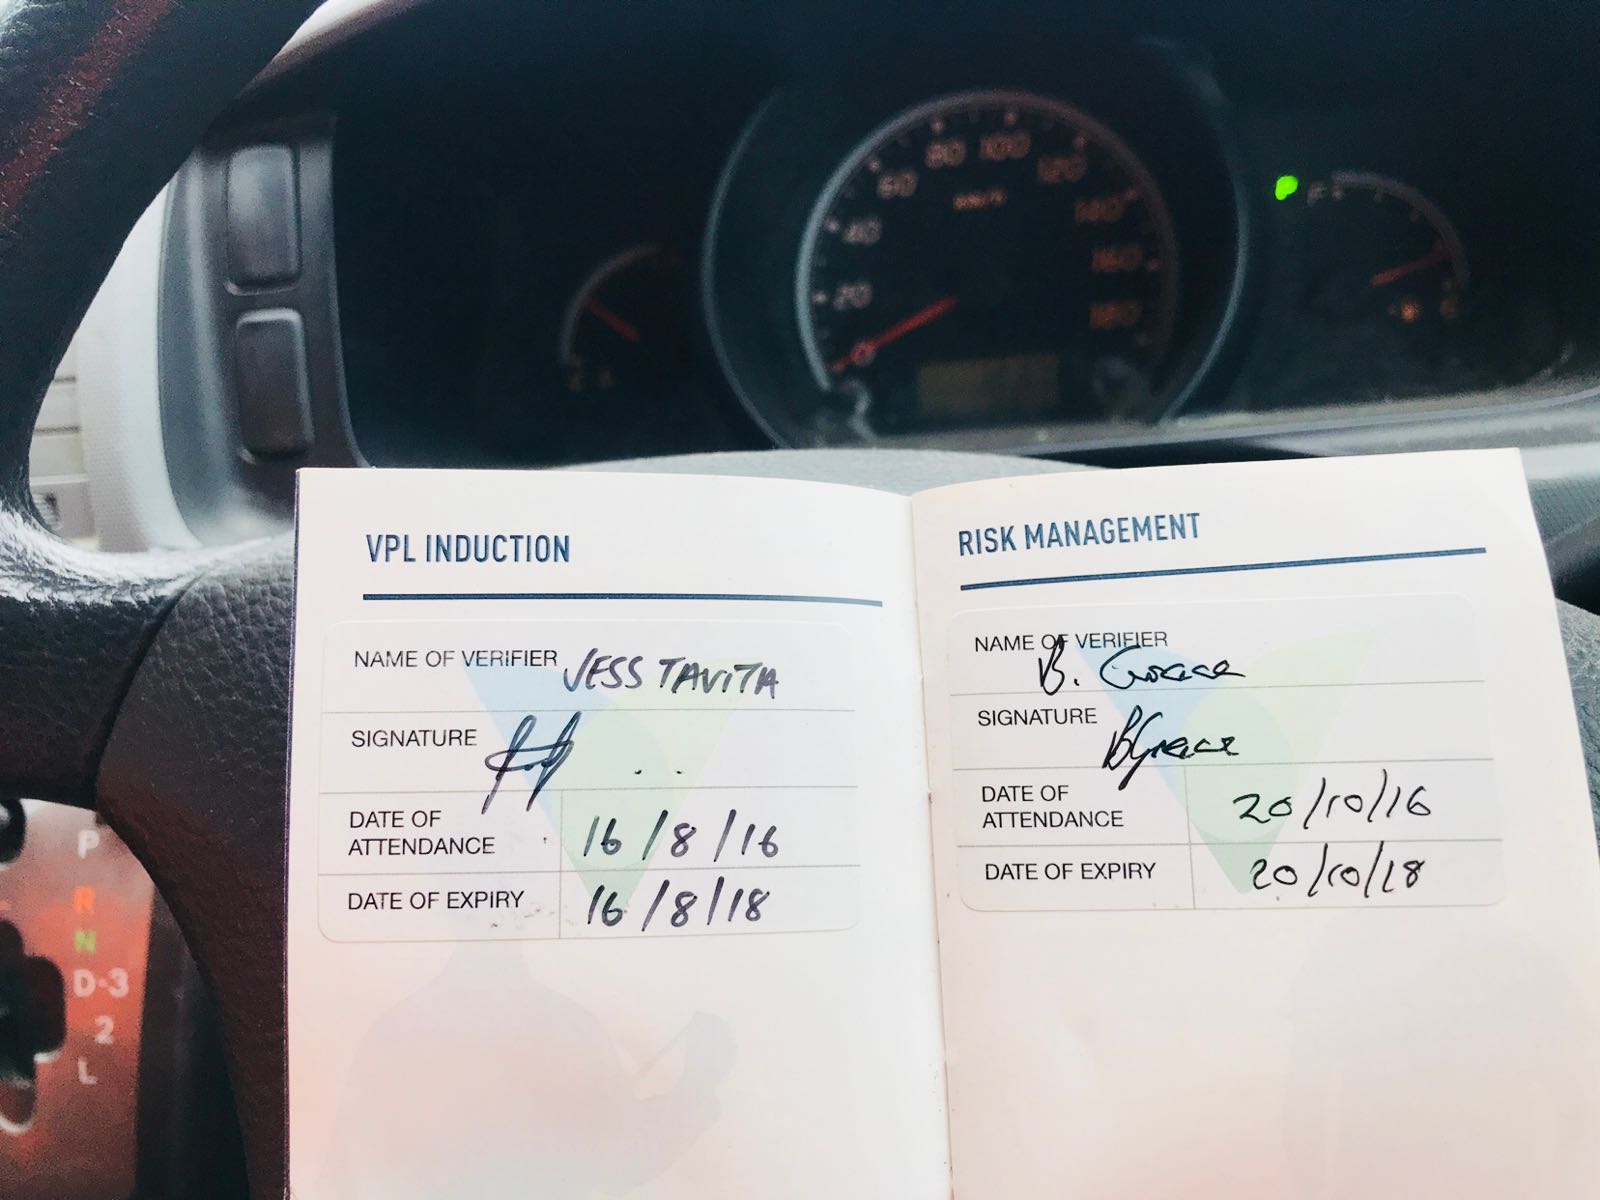 20
40
60
80
100
120
140
160
180
km/h
F
P
R
N
D-3
2
L
VPL INDUCTION
NAME OF VERIFIER JESS TAVITA
SIGNATURE
DATE OF
ATTENDANCE 16/8/16
DATE OF EXPIRY 16/8/18
RISK MANAGEMENT
NAME OF VERIFIER
B.
SIGNATURE
DATE OF
ATTENDANCE 20/10/16
DATE OF EXPIRY 20/10/18